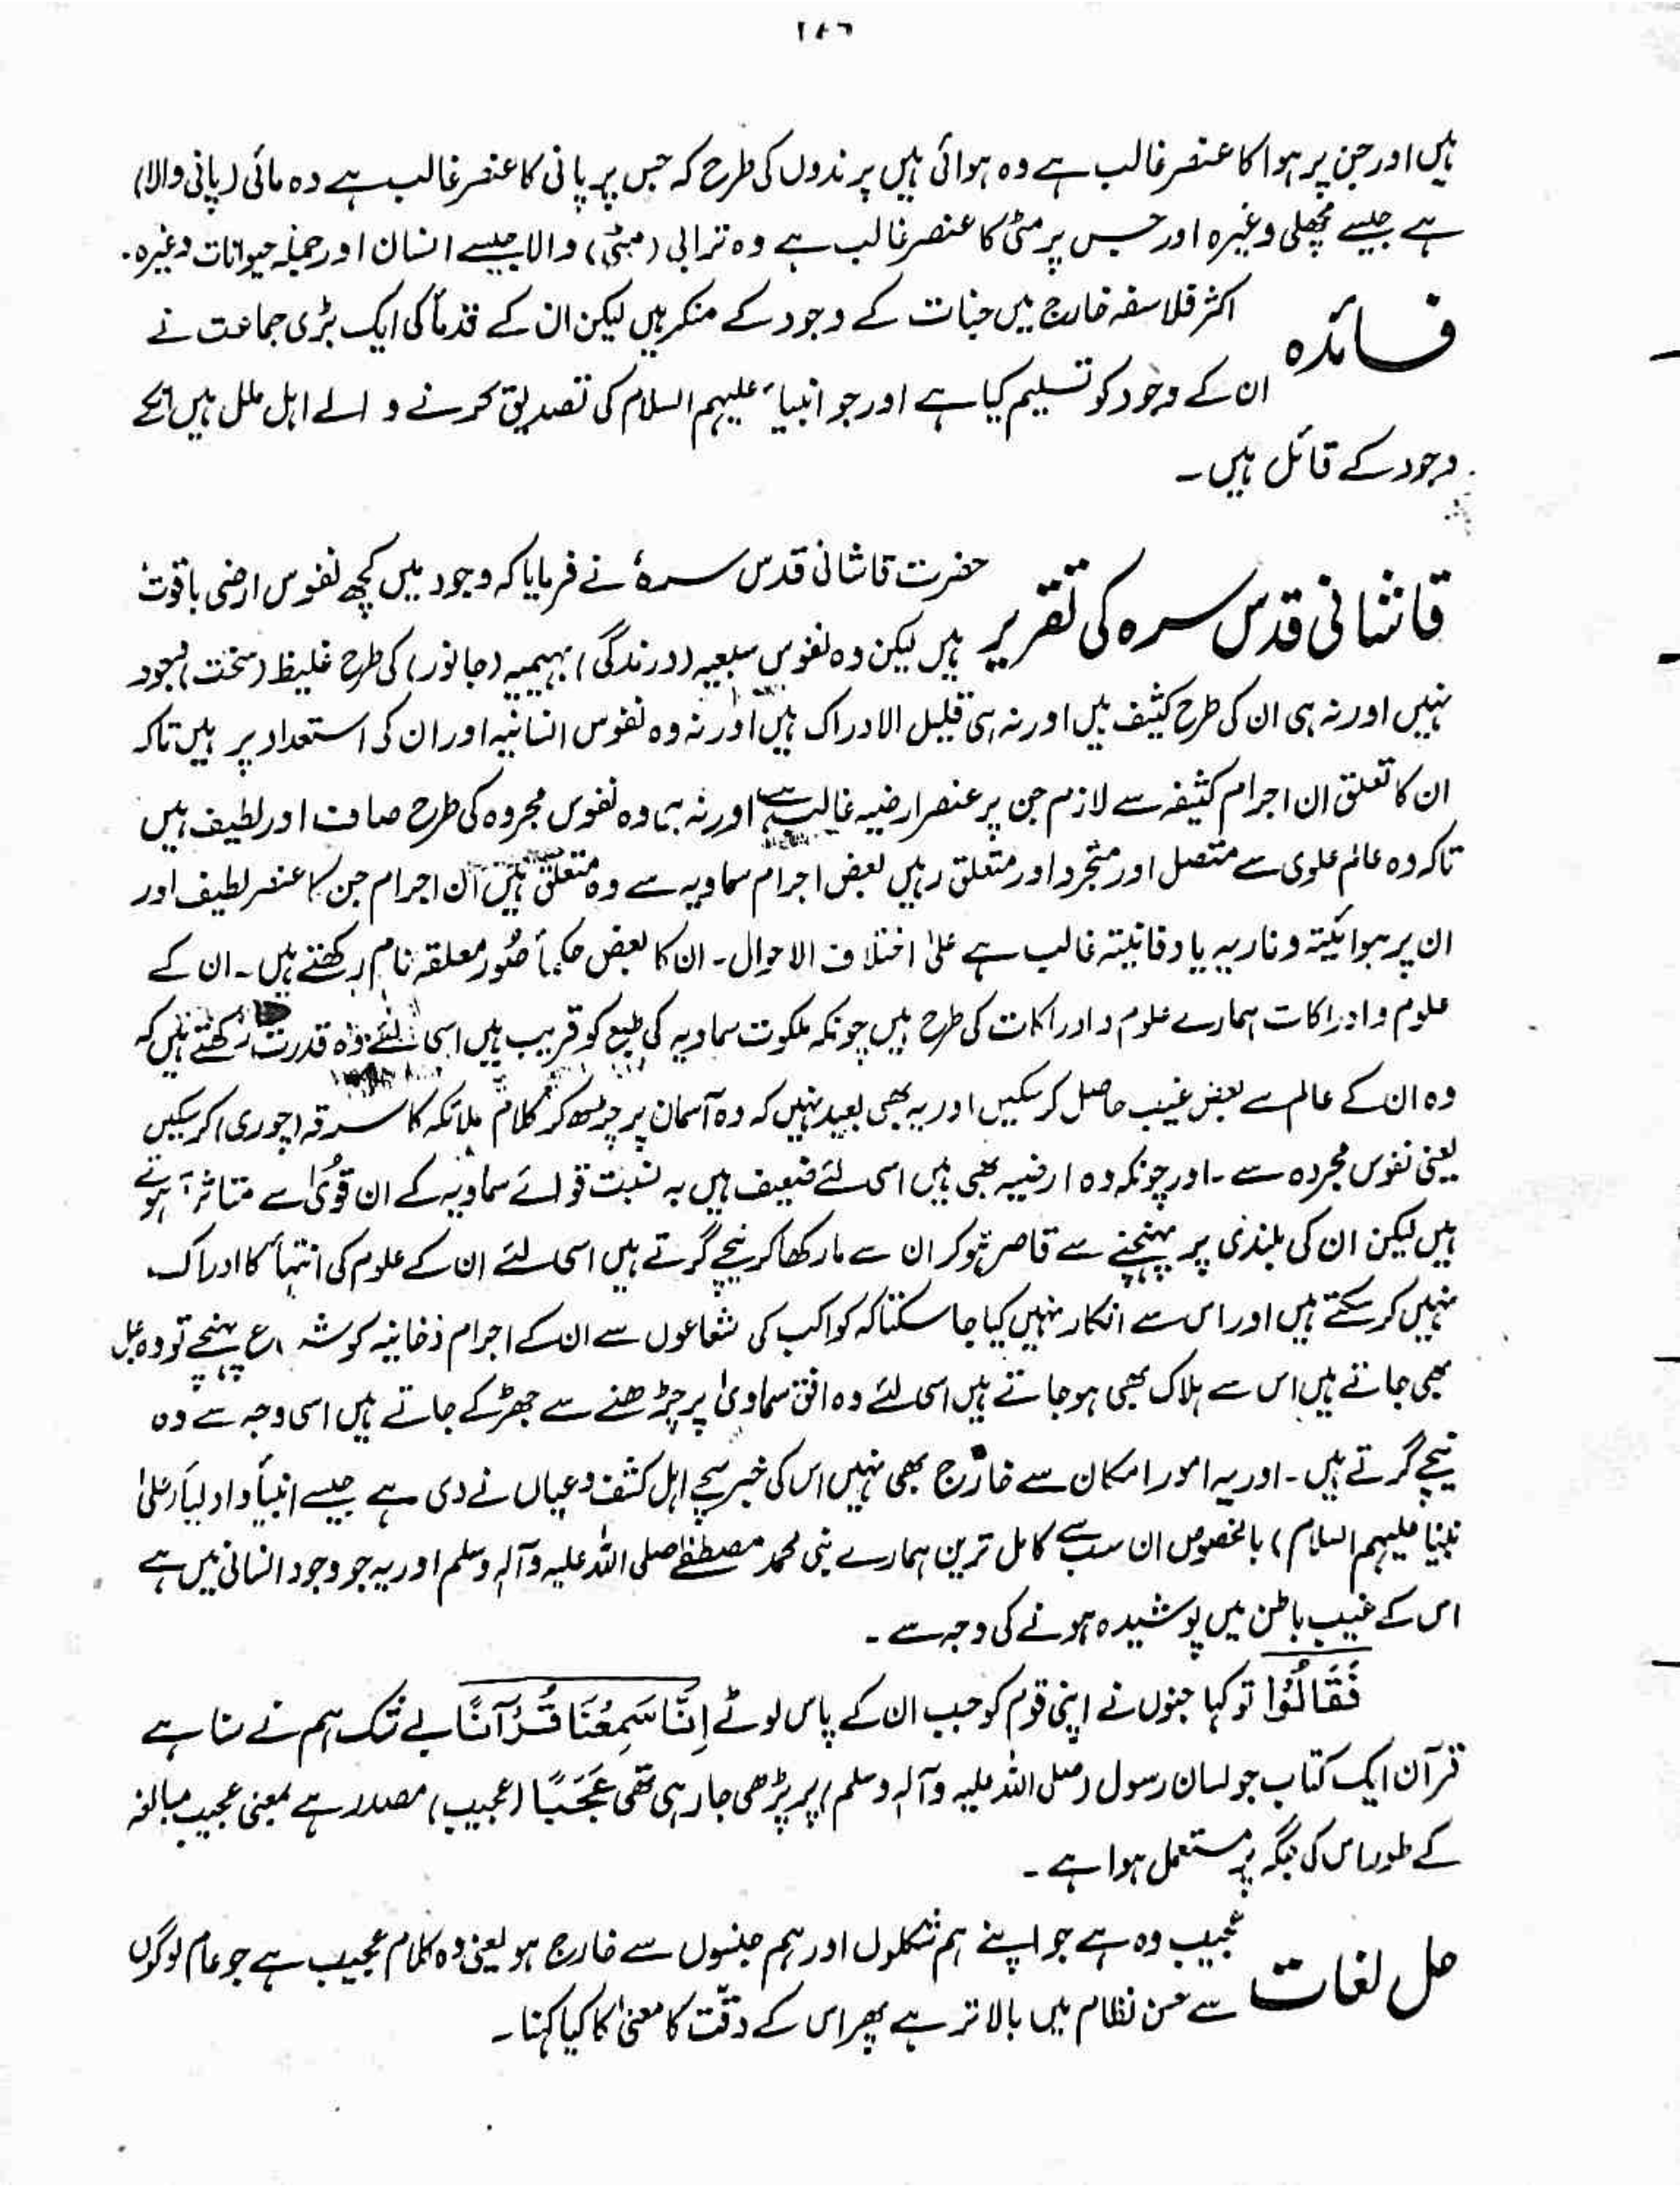 ۲۸۶
ہیں اور جن پر ہوا کا عنصر غالب ہے وہ ہوائی ہیں پرندوں کی طرح کہ جس پر پانی کا عنصر غالب ہے وہ مائی (پانی والا)
ہے جیسے مچھلی وغیرہ اور جس پر مٹی کا عنصر غالب ہے وہ ترابی (مٹی) والا جیسے انسان اور جملہ حیوانات وغیرہ۔
فائدہ
اکثر فلاسفہ خارج میں جنات کے وجود کے منکر ہیں لیکن ان کے قدمأ کی ایک بڑی جماعت نے
ان کے وجود کو تسلیم کیا ہے اور جو انبیاء علیہم السلام کی تصدیق کرنے والے اہل ملل ہیں انکے
وجود کے قائل ہیں۔
قاشانی قدس سرہ کی تقریر
حضرت قاشانی قدس سرہٗ نے فرمایا کہ وجود میں کچھ نفوس ارضی باقوت
ہیں لیکن وہ نفوس سبعیہ (درندگی) بہیمیہ (جانور) کی طرح غلیظ (سخت) وجود
نہیں اور نہ ہی ان کی طرح کثیف ہیں اور نہ ہی قلیل الادراک ہیں اور نہ وہ نفوس انسانیہ اور ان کی استعداد پر ہیں تاکہ
ان کا تعلق ان اجرام کثیفہ سے لازم جن پر عنصر ارضیہ غالب ہے اور نہ ہی وہ نفوس مجردہ کی طرح صاف اور لطیف ہیں
تاکہ وہ عالم علوی سے متصل اور متجرد اور متعلق رہیں بعض اجرام سماویہ سے وہ متعلق ہیں ان اجرام جن کا عنصر لطیف اور
ان پر ہوائیتہ و ناریہ یا دخانیتہ غالب ہے علیٰ اختلاف الاحوال۔ ان کا بعض حکمأ صُور معلقہ نام رکھتے ہیں۔ ان کے
علوم و ادراکات ہمارے علوم و ادراکات کی طرح ہیں چونکہ ملکوت سماویہ کی طبع کو قریب ہیں اسی لئے وہ قدرت رکھتے ہیں کہ
وہ ان کے عالم سے بعض غیب حاصل کر سکیں اور یہ بھی بعید نہیں کہ وہ آسمان پر چڑھ کر کلام ملائکہ کا سرقہ (چوری) کر سکیں
یعنی نفوس مجردہ سے۔ اور چونکہ وہ ارضیہ بھی ہیں اسی لئے ضعیف ہیں بہ نسبت قوائے سماویہ کے ان قُویٰ سے متاثر ہوتے
ہیں لیکن ان کی بلندی پر پہنچنے سے قاصر ہوکر ان سے مار کھا کر نیچے گرتے ہیں اسی لئے ان کے علوم کی انتہأ کا ادراک
نہیں کر سکتے ہیں اور اس سے انکار نہیں کیا جا سکتا کہ کواکب کی شعاعوں سے ان کے اجرام دخانیہ کو شعاع پہنچے تو وہ جل
بھی جاتے ہیں اس سے ہلاک بھی ہو جاتے ہیں اسی لئے وہ افق سماوی پر چڑھنے سے جھڑکے جاتے ہیں اسی وجہ سے وہ
نیچے گرتے ہیں۔ اور یہ امور امکان سے خارج بھی نہیں اس کی خبر سچے اہل کشف و عیاں نے دی ہے جیسے انبیأ و اولیأ (علیٰ
نبینا علیہم السلام) بالخصوص ان سب سے کامل ترین ہمارے نبی محمد مصطفےٰ صلی اللہ علیہ وآلہ وسلم اور یہ جو وجود انسانی میں ہے
اس کے غیب باطن میں پوشیدہ ہونے کی وجہ سے۔
فَقَالُوْا تو کہا جنوں نے اپنی قوم کو جب ان کے پاس لوٹے اِنَّا سَمِعْنَا قُرْآنًا بے شک ہم نے سنا ہے
قرآن ایک کتاب جو لسان رسول (صلی اللہ علیہ وآلہ وسلم) پر پڑھی جا رہی تھی عَجَبًا (عجیب) مصدر ہے بمعنی عجیب مبالغہ
کے طور اس کی جگہ پر مستعمل ہوا ہے۔
حل لغات
عجیب وہ ہے جو اپنے ہم شکلوں اور ہم جنسوں سے خارج ہو یعنی وہ کلام عجیب ہے جو عام لوگوں
سے حسن نظام میں بالاتر ہے پھر اس کے دقّت کا معنیٰ کا کیا کہنا۔